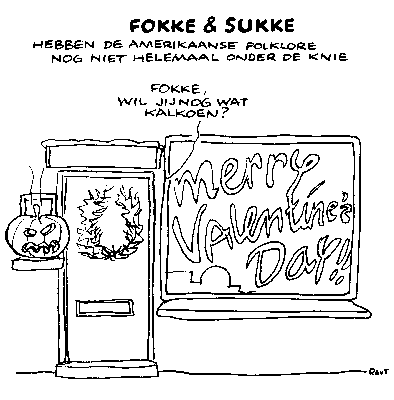 FOKKE & SUKKE
HEBBEN DE AMERIKAANSE FOLKLORE
NOG NIET HELEMAAL ONDER DE KNIE
FOKKE,
WIL JIJ NOG WAT
KALKOEN?
Merry
Valentine's
Day!!
RGvT